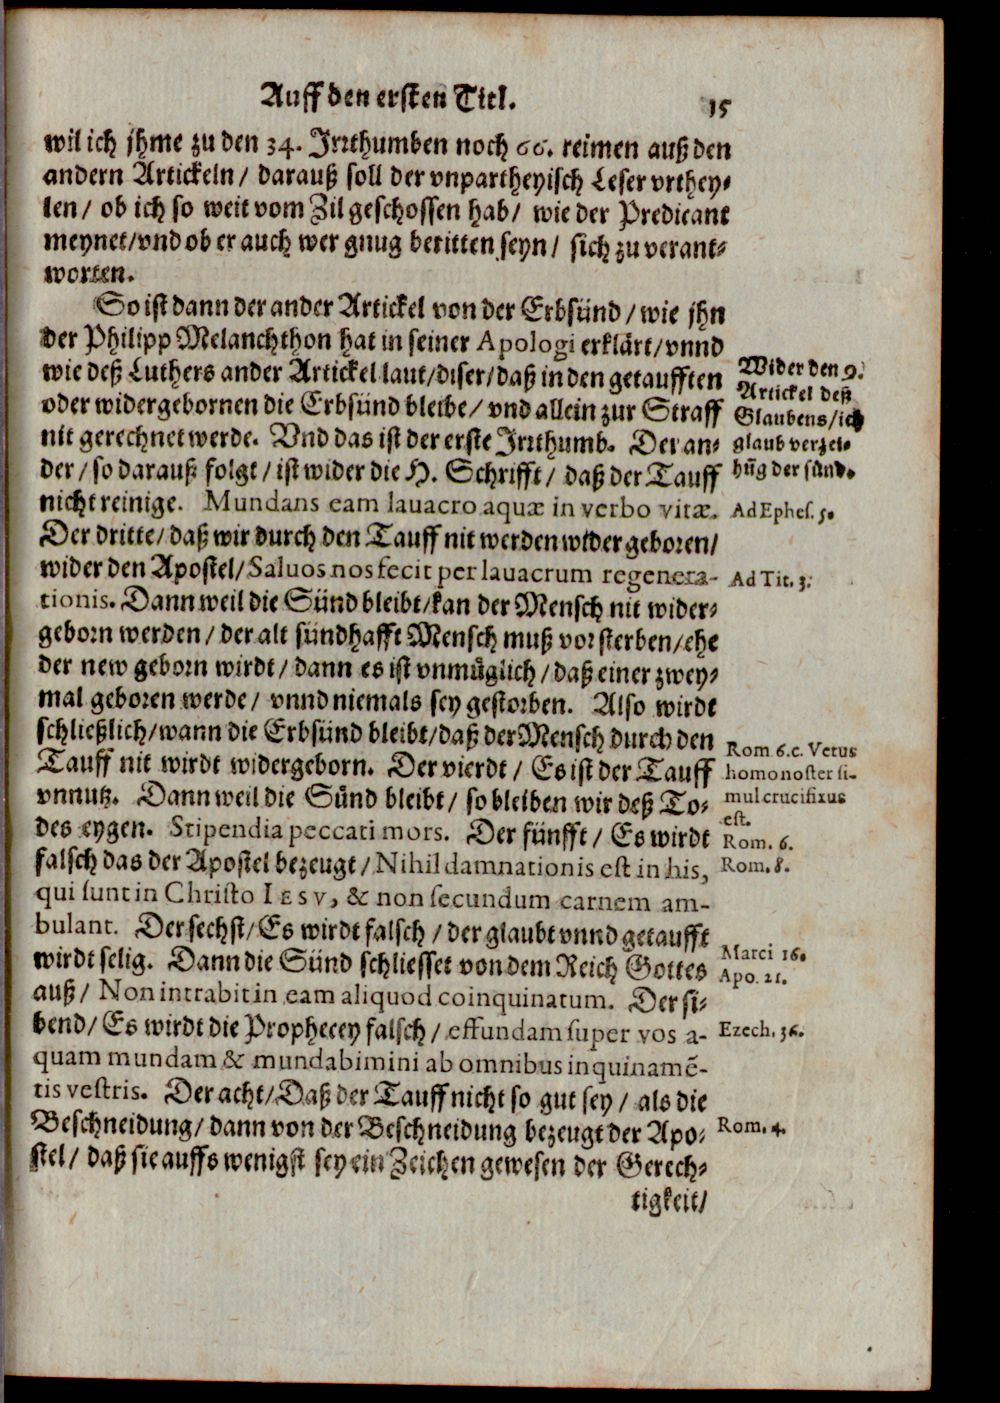 Auff den ersten Titl.
15
wil ich jhme zu den 34. Jrrthumben noch 66. reimen auß den
andern Artickeln / darauß soll der vnpartheyisch Leser vrthey-
len / ob ich so weit vom Zil geschossen hab / wie der Predicant
meynet / vnd ob er auch wer gnug beritten seyn / sich zu verant-
worten.
So ist dann der ander Artickel von der Erbsünd / wie jhn
der Philipp Melanchthon hat in seiner Apologi erklärt / vnnd
wie deß Luthers ander Artickel laut / diser / daß in den getaufften
oder widergebornen die Erbsünd bleibe / vnd allein zur Straff
nit gerechnet werde. Vnd das ist der erste Jrrthumb. Der an-
der / so darauß folgt / ist wider die H. Schrifft / daß der Tauff
nicht reinige. Mundans eam lavacro aquæ in verbo vitæ.
Der dritte / daß wir durch den Tauff nit werden wider geboren /
wider den Apostel / Saluos nos fecit per lauacrum regenera-
tionis. Dann weil die Sünd bleibt / kan der Mensch nit wider-
geborn werden / der alt sündhafft Mensch muß vor sterben / ehe
der new geborn wirdt / dann es ist vnmüglich / daß einer zwey-
mal geboren werde / vnnd niemals sey gestorben. Also wirdt
schließlich / wann die Erbsünd bleibt / daß der Mensch durch den
Tauff nit wirdt widergeborn. Der vierdt / Es ist der Tauff
vnnutz. Dann weil die Sünd bleibt / so bleiben wir deß To-
des eygen. Stipendia peccati mors. Der fünfft / Es wirdt
falsch das der Apostel bezeugt / Nihil damnationis est in his,
qui sunt in Christo IESV, & non secundum carnem am-
bulant. Der sechst / Es wirdt falsch / der glaubt vnnd getaufft
wirdt selig. Dann die Sünd schliesset von dem Reich Gottes
auß / Non intrabit in eam aliquod coinquinatum. Der si-
bend / Es wirdt die Prophecey falsch / effundam super vos a-
quam mundam & mundabimini ab omnibus inquinamē-
tis vestris. Der acht / Daß der Tauff nicht so gut sey / als die
Beschneidung / dann von der Beschneidung bezeugt der Apo-
stel / daß sie auffs wenigst sey ein Zeichen gewesen der Gerech-
tigkeit /
Wider den 9.
Artickel deß
Glaubens / ich
glaub verzei-
hūg der sünd.
Ad Ephes. 5.
Ad Tit. 3.
Rom 6.c. Vetus
homo noster si-
mul crucifixus
est.
Rom. 6.
Rom. 8.
Marci 16.
Apo. 21.
Ezech. 36.
Rom. 4.